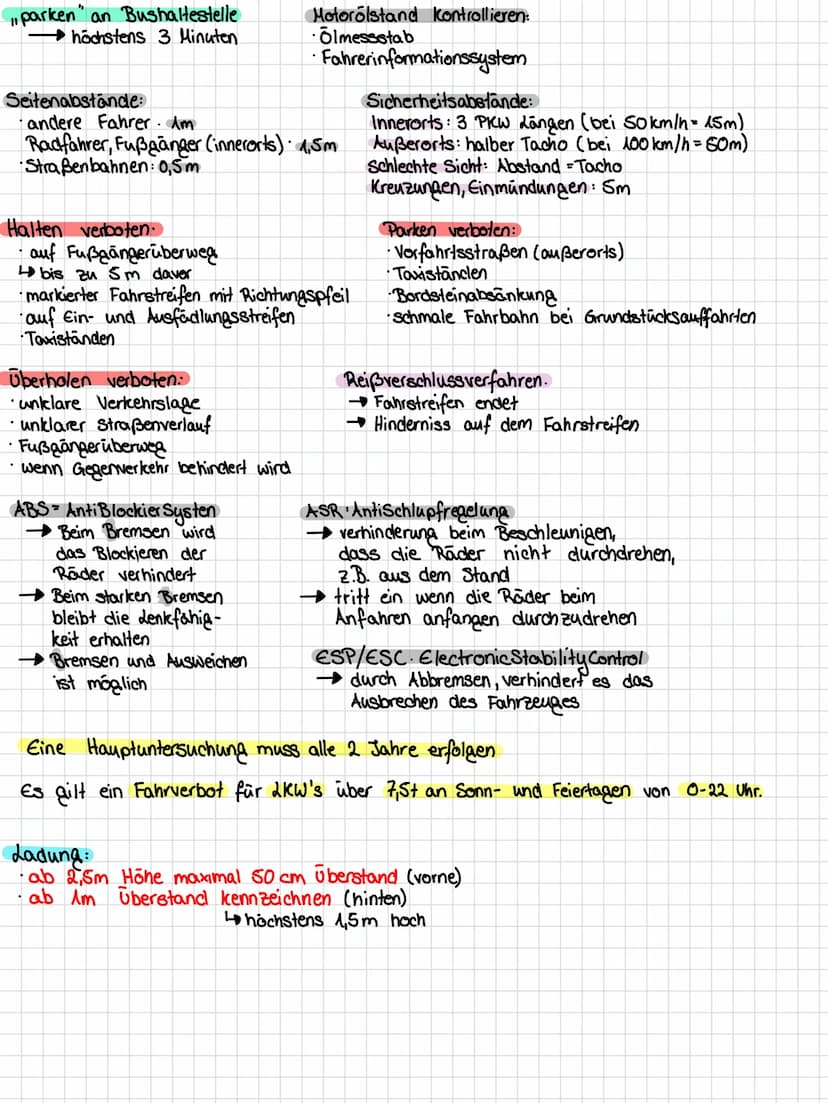 „parken" an Bushaltestelle
→ höchstens 3 Minuten
Motorölstand kontrollieren:
· Ölmessstab
· Fahrerinformationssystem
Seitenabstände:
· andere Fahrer: 1m
Radfahrer, Fußgänger (innerorts): 1,5m
· Straßenbahnen: 0,5m
Sicherheitsabstände:
Innerorts: 3 PKW Längen (bei 50km/h = 15m)
Außerorts: halber Tacho (bei 100 km/h = 50m)
Schlechte Sicht: Abstand = Tacho
Kreuzungen, Einmündungen: 5m
Halten verboten:
· auf Fußgängerüberweg
↳ bis zu 5m davor
· markierter Fahrstreifen mit Richtungspfeil
· auf Ein- und Ausfädlungsstreifen
· Taxiständen
Parken verboten:
· Vorfahrtsstraßen (außerorts)
· Taxiständen
· Bordsteinabsänkung
· schmale Fahrbahn bei Grundstücksauffahrten
Überholen verboten:
· unklare Verkehrslage
· unklarer Straßenverlauf
· Fußgängerüberweg
· wenn Gegenverkehr behindert wird
Reißverschlussverfahren:
→ Fahrstreifen endet
→ Hinderniss auf dem Fahrstreifen
ABS = AntiBlockierSystem
→ Beim Bremsen wird
das Blockieren der
Räder verhindert
→ Beim starken Bremsen
bleibt die Lenkfähig-
keit erhalten
→ Bremsen und Ausweichen
ist möglich
ASR: AntiSchlupfregelung
→ verhinderung beim Beschleunigen,
dass die Räder nicht durchdrehen,
z.B. aus dem Stand
→ tritt ein wenn die Räder beim
Anfahren anfangen durchzudrehen
ESP/ESC: ElectronicStabilityControl
→ durch Abbremsen, verhindert es das
Ausbrechen des Fahrzeuges
Eine Hauptuntersuchung muss alle 2 Jahre erfolgen
Es gilt ein Fahrverbot für LKW's über 7,5t an Sonn- und Feiertagen von 0-22 Uhr.
Ladung:
· ab 2,5m Höhe maximal 50 cm Überstand (vorne)
· ab 1m Überstand kennzeichnen (hinten)
↳ höchstens 1,5m hoch